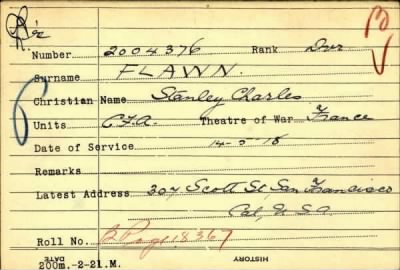 Number 2004376 Rank Dvr
Surname FLAWN.
Christian Name Stanley Charles
Units C.F.A. Theatre of War France
Date of Service 14-5-18
Remarks
Latest Address 307 Scott St San Francisco
Cal, U.S.A.
Roll No. B Page 18367
200m.-2-21.M. HISTORY